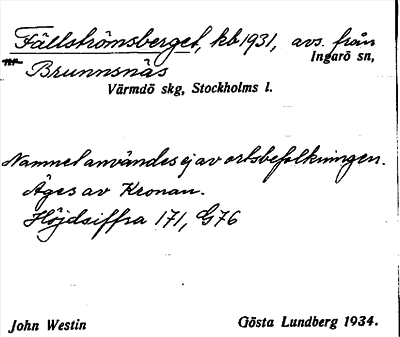 Fällströmsberget, kb 1931, avs. från
Brunnsnäs
Ingarö sn,
Värmdö skg, Stockholms l.
Namnet användes ej av ortsbefolkningen.
Äges av Kronan.
Höjdsiffra 171, G76
John Westin
Gösta Lundberg 1934.